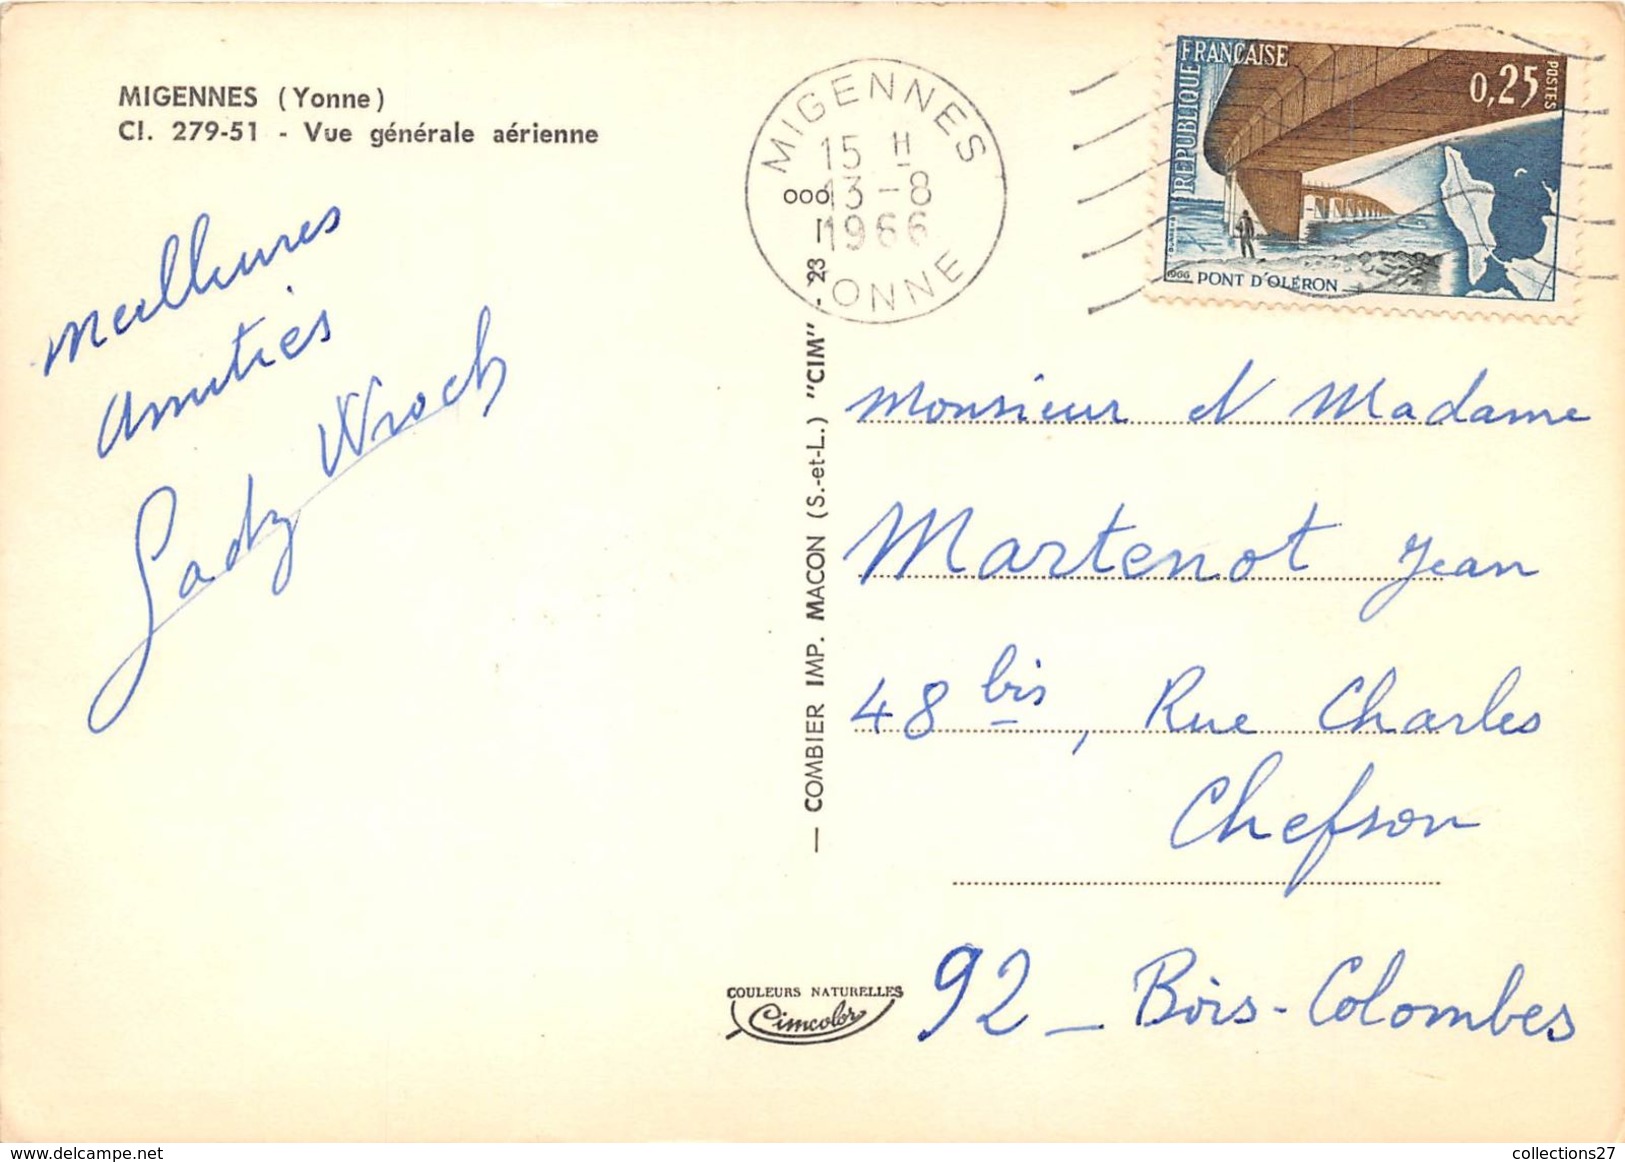 MIGENNES (Yonne)
Cl. 279-51 - Vue générale aérienne
Meilleures
amitiés
MIGENNES
15 H
13-8
1966
YONNE
REPUBLIQUE FRANÇAISE
0,25
POSTES
1966 PONT D'OLÉRON
— COMBIER IMP. MACON (S.-et-L.) "CIM" - 23
Monsieur et Madame
Martenot Jean
48 bis, Rue Charles
Chefson
92 - Bois-Colombes
COULEURS NATURELLES
Cimcolor
www.delcampe.net
collections27